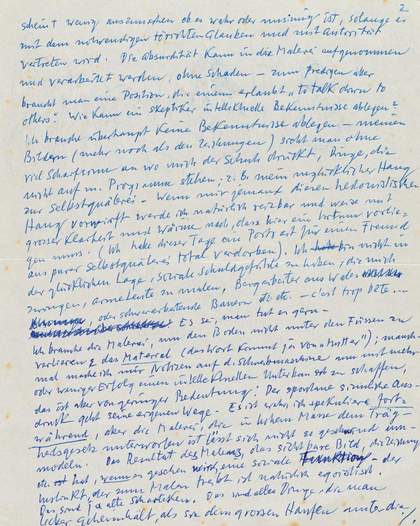 2
scheint wenig auszumachen ob es wahr oder unsinnig ist, solange es
mit dem notwendigen Glauben und mit Autorität
vertreten wird. Die Absurdität kann in die Malerei aufgenommen
und verarbeitet werden, ohne Schaden – zum Predigen aber
braucht man eine Position, die einem erlaubt „to talk down to
others". Wie kann ein skeptischer intellektuelle Bekenntnisse ablegen?
Ich brauche überhaupt keine Bekenntnisse ablegen – meinen
Bildern (mehr noch als den Zeichnungen) sieht man ohne
viel Scharfsinn an wo mich der Schuh drückt, Dinge, die
nicht auf m. Programm stehen: z. B. mein unglücklicher Hang
zur Selbstquälerei. Wenn mir jemand diesen hedonistischen
Hang vorwirft werde ich natürlich reizbar und weise mit
grosser Klarheit und Wärme nach, dass hier ein Irrtum vorlie-
gen muss. (Ich habe dieser Tage ein Portrait für einen Freund
aus purer Selbstquälerei total verdorben). Ich bin nicht in
der glücklichen Lage, soziale Schuldgefühle zu haben, die mich
zwingen, arme Leute zu malen, Bergarbeiter aus Wales
oder schwerarbeitende Bauern etc. etc. – c'est trop bête...
Es sei, man tut es gern.
Ich brauche die Malerei, um den Boden nicht unter den Füssen zu
verlieren & das Material (das Wort kommt ja von „Mutter"); manch-
mal mache ich mir Notizen auf die Schreibmaschine um mit mehr
oder weniger Erfolg einen intellektuellen Unterbau zu schaffen,
das ist aber von geringer Bedeutung. Der spontane sinnliche Aus-
druck geht seine eigenen Wege. Es ist wahr, ich spekuliere fort-
während, aber die Malerei, die in hohem Masse dem Träg-
heitsgesetz unterworfen ist lässt sich nicht so geschwind um-
modeln. Das Resultat des Malens, das sichtbare Bild, die Zeichnung
etc. hat, wenn es gesehen wird, eine soziale Funktion – der
Instinkt, der zum Malen treibt ist natürlich egoistisch.
Das sind ja alte Das sind alles Dinge, die man
lieber geheimhält, als sie dem grossen Haufen unter die